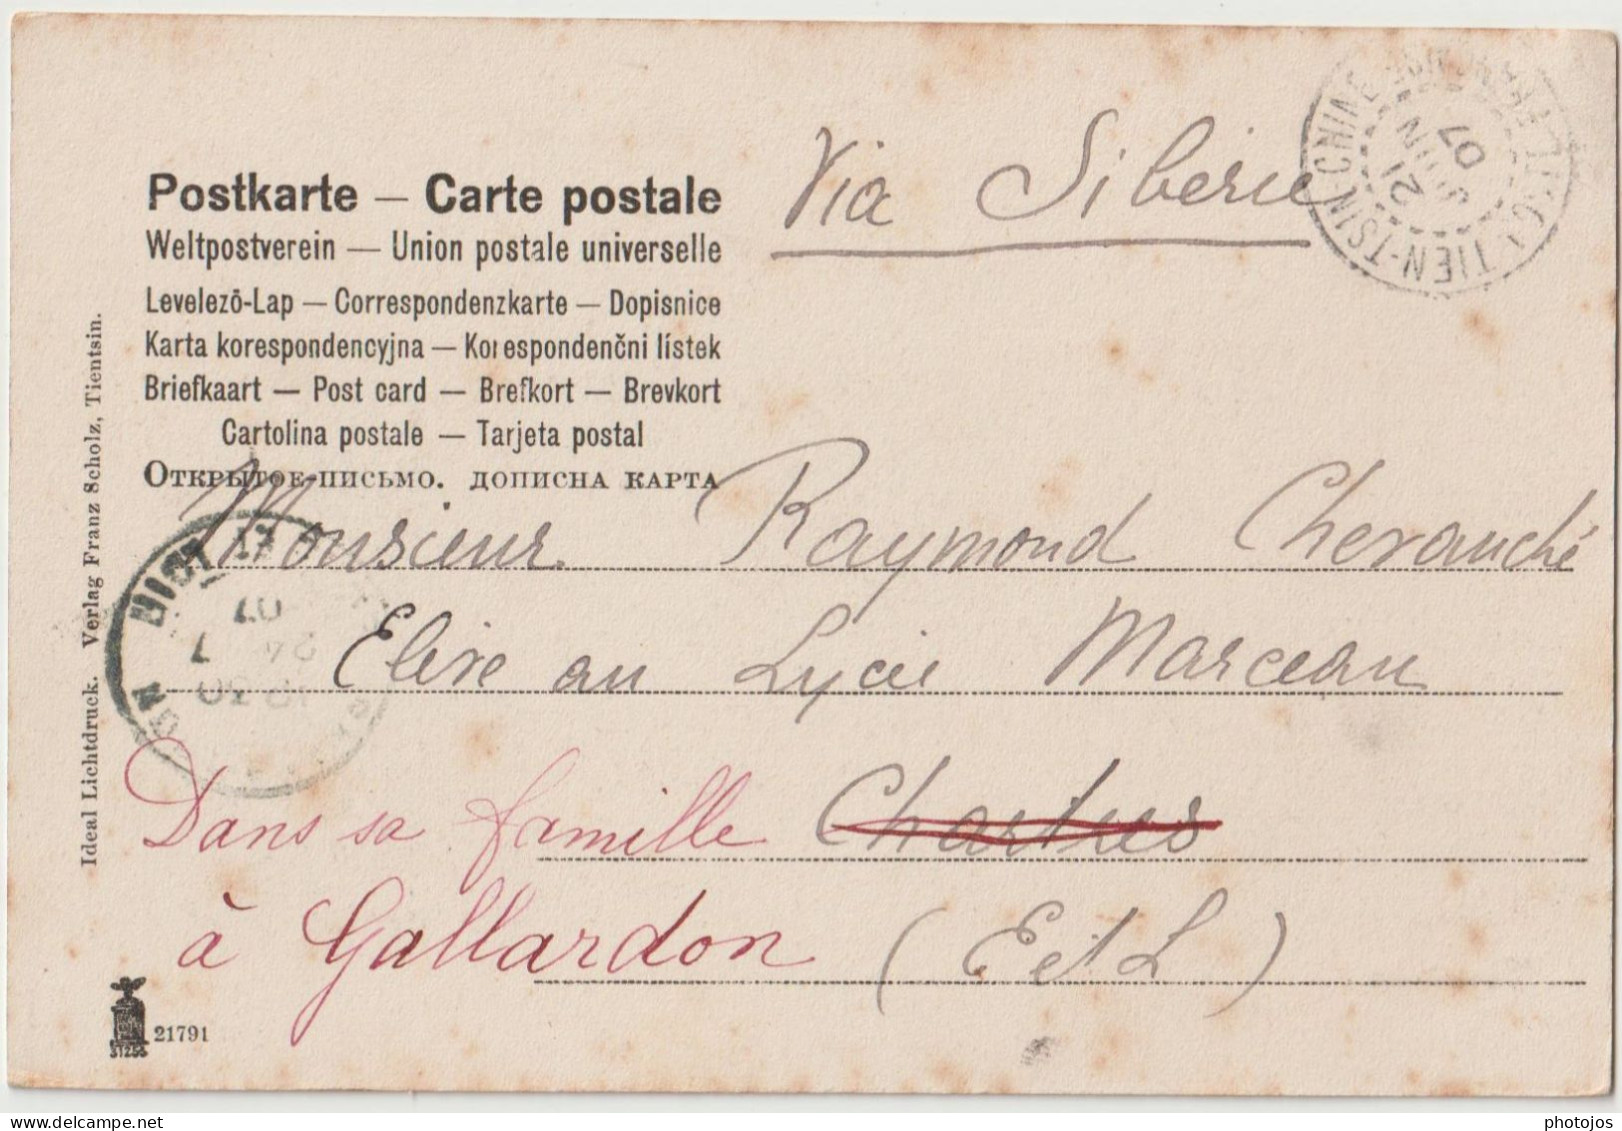 Postkarte — Carte postale
Weltpostverein — Union postale universelle
Levelezõ-Lap — Correspondenzkarte — Dopisnice
Karta korespondencyjna — Korespondenčni lístek
Briefkaart — Post card — Brefkort — Brevkort
Cartolina postale — Tarjeta postal
Открытое письмо. дописна карта
Via Siberie
TIEN-TSIN-CHINE
21 JUIN 07
Monsieur Raymond Cheranché
Elève au Lycée Marceau
Dans sa famille Chartres
à Gallardon (E et L)
07
Ideal Lichtdruck. Verlag Franz Scholz, Tientsin.
21791
photojos
delcampe.net